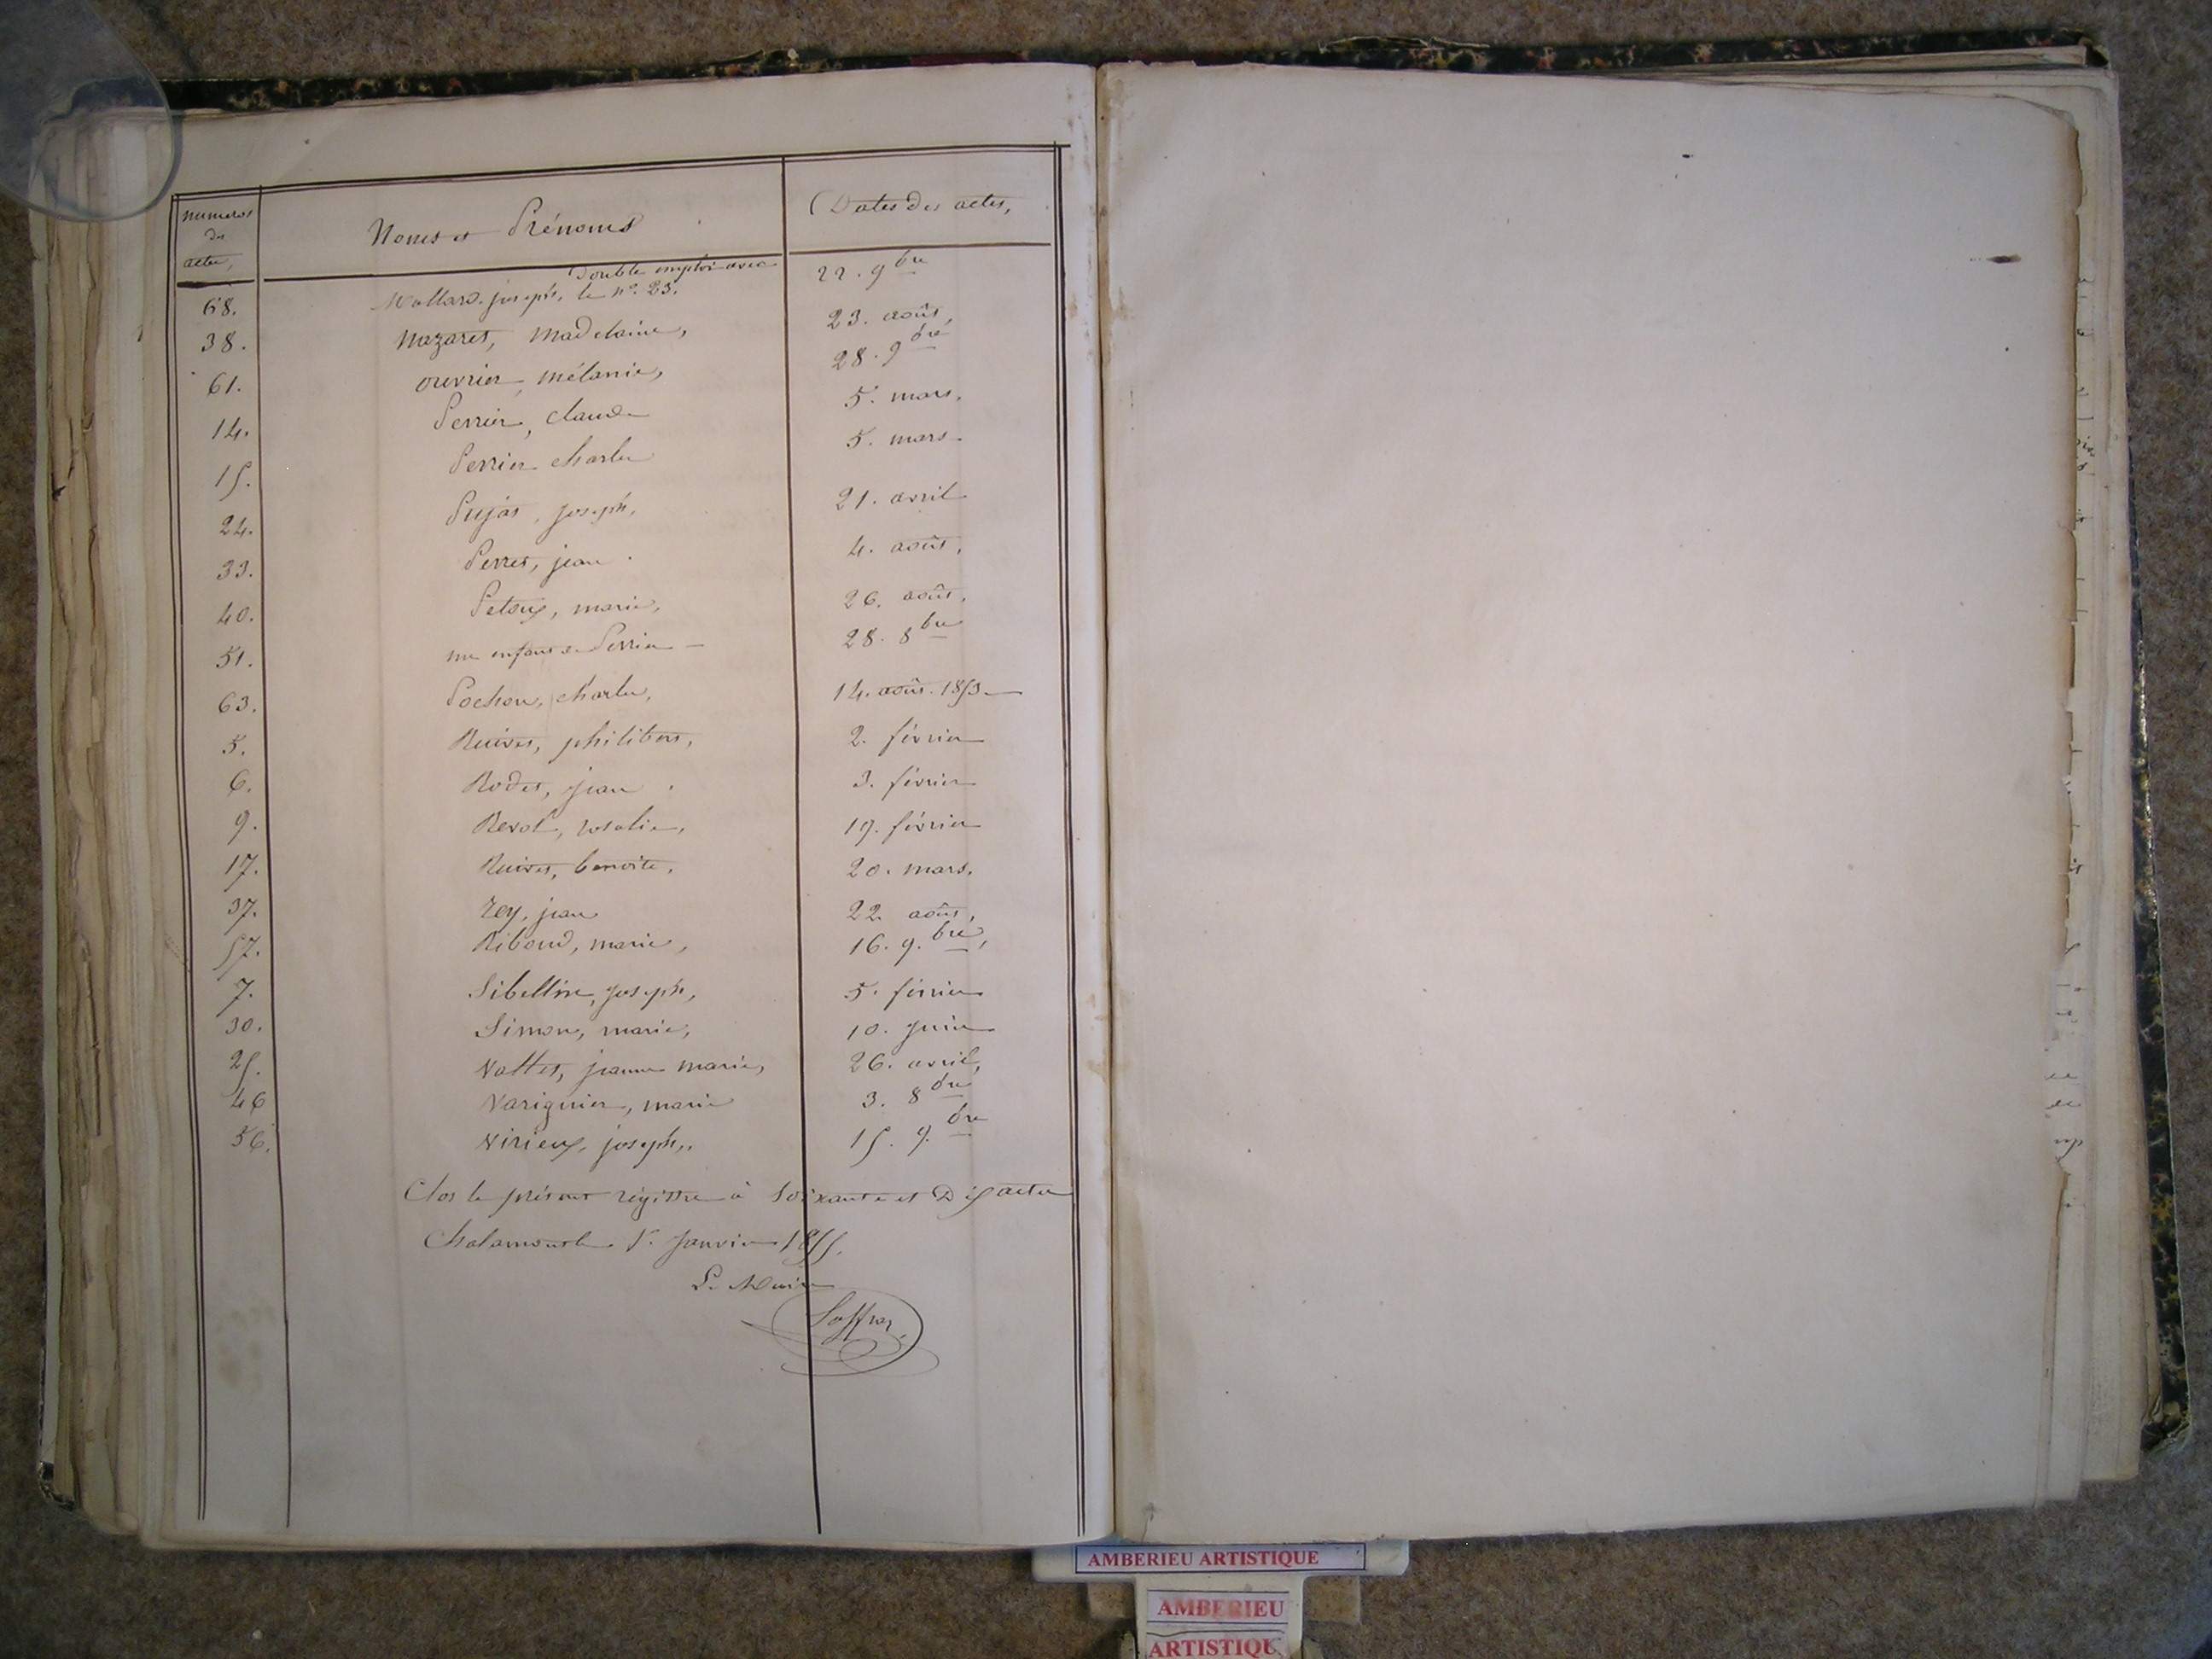 numeros
des
actes,
Noms et Prénoms
Dates des actes,
Double emploi avec
68. Mollard. joseph, le n°. 23. 22. 9bre
38. Nazaret, Madelaine, 23. août,
61. Ouvrier, mélanie, 28. 9bre
14. Perrier, claude 5. mars,
15. Perrier charles 5. mars.
24. Pujat, joseph, 21. avril
33. Perret, jean 4. août,
40. Petoux, marie, 26. août,
51. un enfant de Perrier 28. 8bre
63. Pochon, charles, 14. août. 1853
5. Ruivet, philibert, 2. février
6. Rodet, jean 3. février
9. Revol, rosalie, 19. février
17. Ruivet, benoite, 20. mars.
37. rey, jean 22. août,
57. Riboud, marie, 16. 9.bre,
7. Sibellin, joseph, 5. février
30. Simon, marie, 10. juin
25. Vollet, jeanne marie, 26. avril,
46 Varignier, marie 3. 8bre
56. Virieux, joseph,. 15. 9.bre
Clos le présent régistre à soixante et Dix actes
Chalamont le 1er Janvier 1855.
Le Maire
AMBERIEU ARTISTIQUE
AMBERIEU
ARTISTIQU